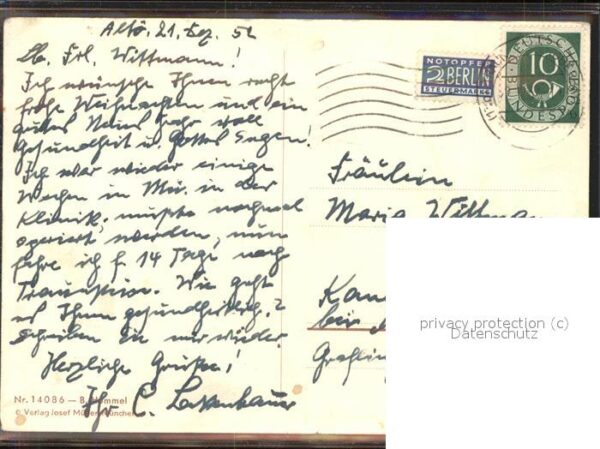 Altö. 21. Dez. 52
Lb. Frl. Wittmann!
Ich wünsche Ihnen recht
frohe Weihnachten und ein
gutes Neues Jahr voll
Gesundheit u. Gottes Segen!
Ich war wieder einige
Wochen in Mü. in der
Klinik, mußte nochmal
operiert werden, nun
fahre ich f. 14 Tage nach
Traunstein. Wie geht
es Ihnen gesundheitlich?
Schreiben Sie mir wieder.
Herzliche Grüße!
Ihr C.
Nr. 14086 — B. Hummel
© Verlag Josef Müller München
NOTOPFER
2 BERLIN
STEUERMARKE
DEUTSCHE BUNDESPOST
10
Fräulein
Maria Wittmann
bei
privacy protection (c)
Datenschutz